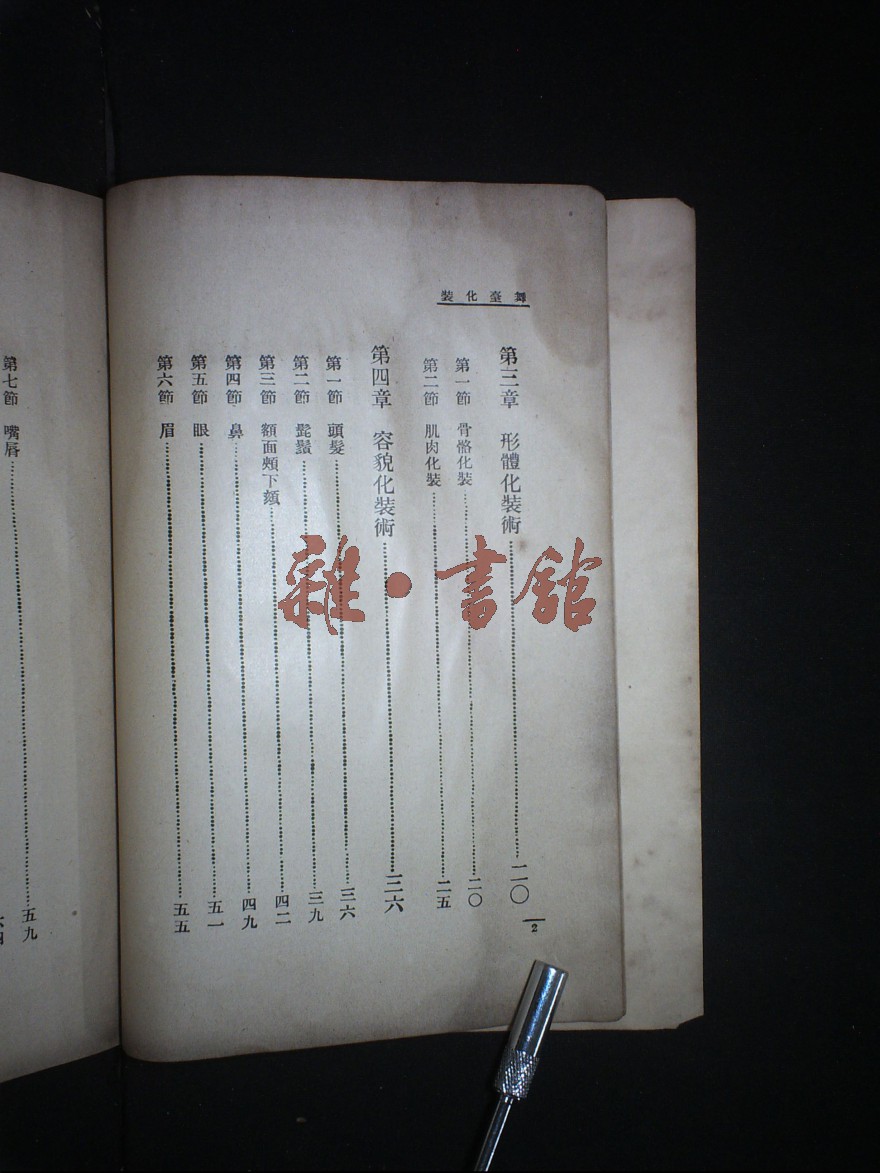 舞臺化裝
第三章 形體化裝術 二〇
第一節 骨骼化裝 二〇
第二節 肌肉化裝 二五
第四章 容貌化裝術 三六
第一節 頭髮 三六
第二節 髭鬚 三九
第三節 額面頰下頦 四二
第四節 鼻 四九
第五節 眼 五一
第六節 眉 五五
2
第七節 嘴唇 五九
雜·書館